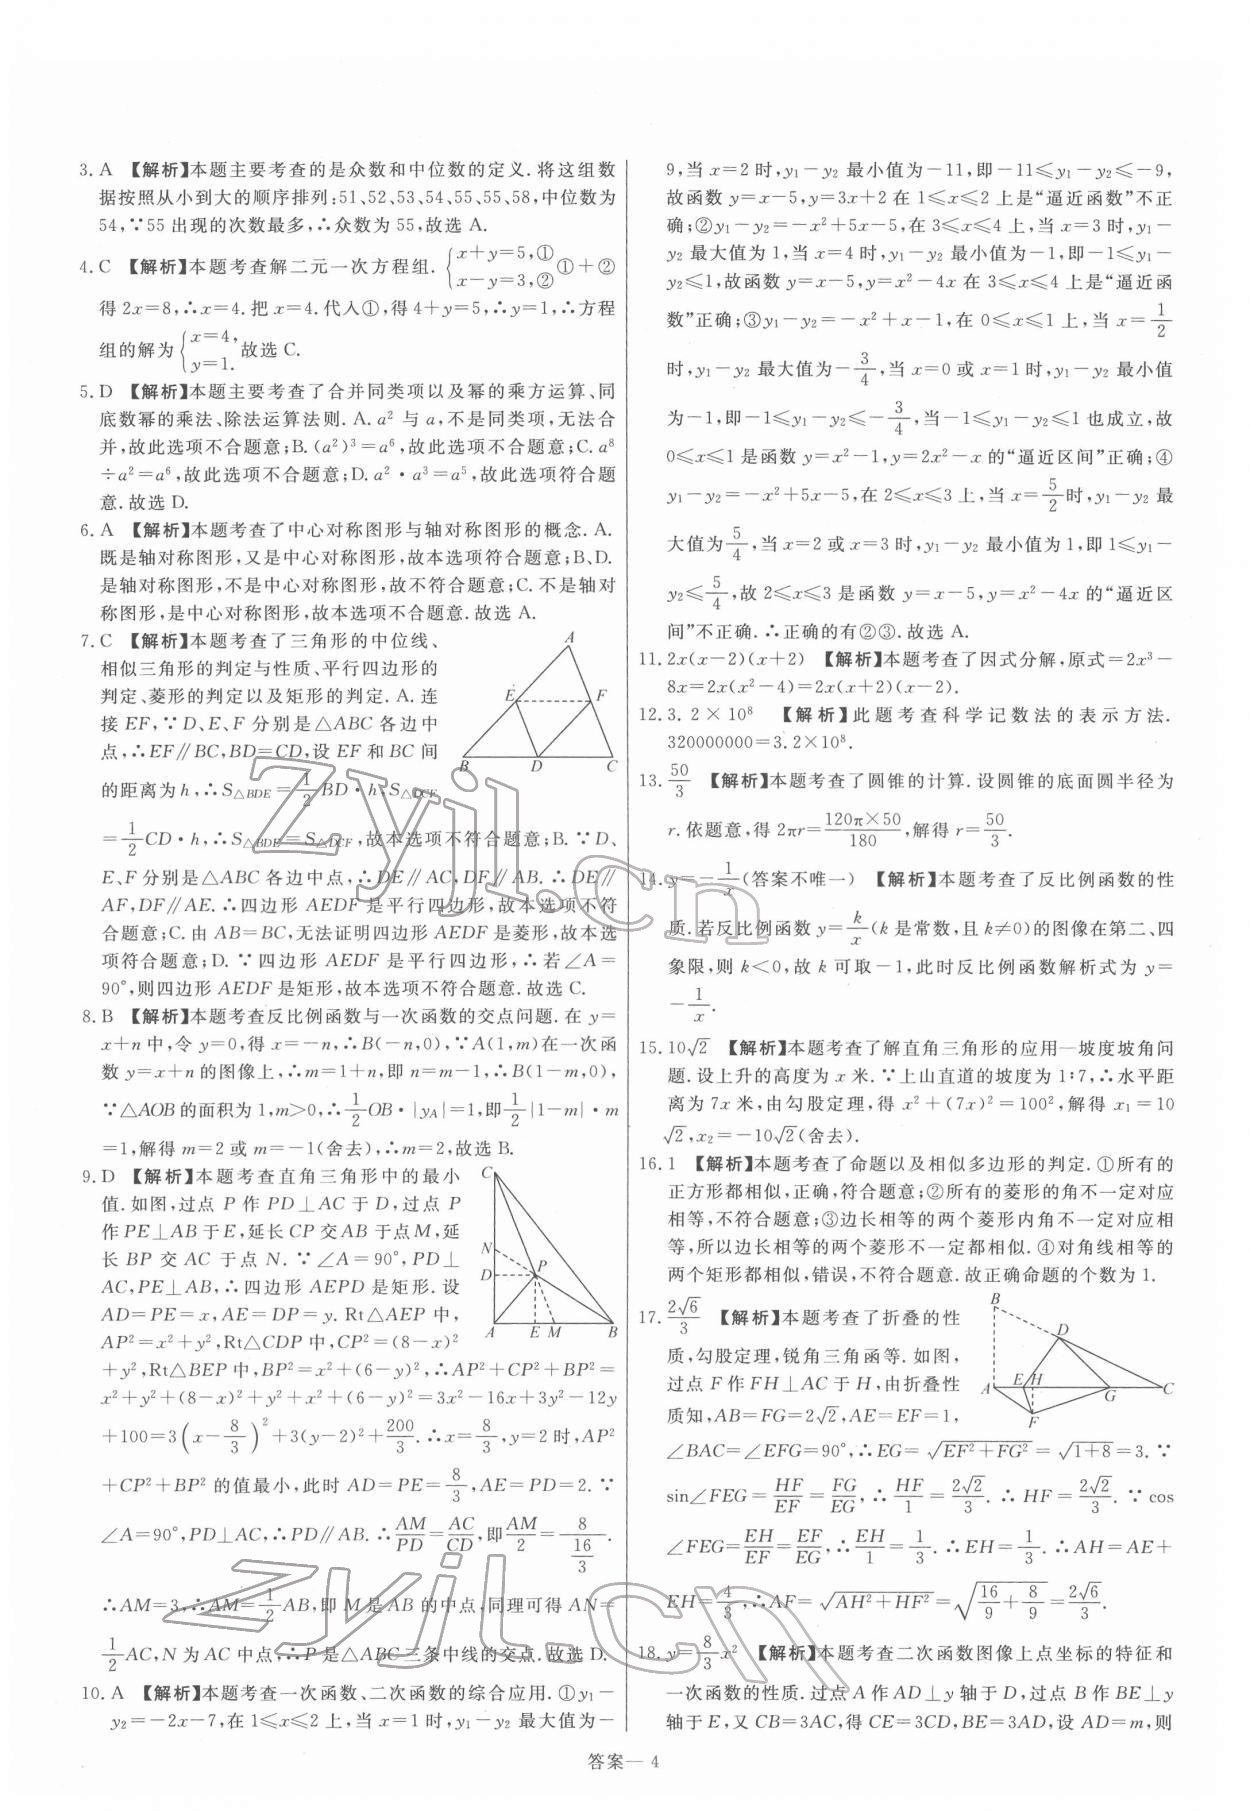 3. A 【解析】本题主要考查的是众数和中位数的定义. 将这组数
据按照从小到大的顺序排列:51,52,53,54,55,55,58,中位数为
54,∵55 出现的次数最多,∴众数为 55,故选 A.
4. C 【解析】本题考查解二元一次方程组. {x+y=5,① x−y=3,② ①+②
得 2x=8,∴x=4. 把 x=4. 代入①,得 4+y=5,∴y=1,∴方程
组的解为 {x=4, y=1. 故选 C.
5. D 【解析】本题主要考查了合并同类项以及幂的乘方运算、同
底数幂的乘法、除法运算法则. A. a² 与 a,不是同类项,无法合
并,故此选项不合题意;B. (a²)³=a⁶,故此选项不合题意;C. a⁸
÷a²=a⁶,故此选项不合题意;D. a²·a³=a⁵,故此选项符合题
意. 故选 D.
6. A 【解析】本题考查了中心对称图形与轴对称图形的概念. A.
既是轴对称图形,又是中心对称图形,故本选项符合题意;B、D.
是轴对称图形,不是中心对称图形,故不符合题意;C. 不是轴对
称图形,是中心对称图形,故本选项不合题意. 故选 A.
7. C 【解析】本题考查了三角形的中位线、
相似三角形的判定与性质、平行四边形的
判定、菱形的判定以及矩形的判定. A. 连
接 EF,∵D、E、F 分别是△ABC 各边中
点,∴EF∥BC,BD=CD,设 EF 和 BC 间
的距离为 h,∴S△BDE=1/2 BD·h,S△DCF
=1/2 CD·h,∴S△BDE=S△DCF,故本选项不符合题意;B. ∵D、
E、F 分别是△ABC 各边中点,∴DE∥AC,DF∥AB. ∴DE∥
AF,DF∥AE. ∴四边形 AEDF 是平行四边形,故本选项不符
合题意;C. 由 AB=BC,无法证明四边形 AEDF 是菱形,故本选
项符合题意;D. ∵四边形 AEDF 是平行四边形,∴若∠A=
90°,则四边形 AEDF 是矩形,故本选项不符合题意. 故选 C.
A
E
F
B
D
C
8. B 【解析】本题考查反比例函数与一次函数的交点问题. 在 y=
x+n 中,令 y=0,得 x=−n,∴B(−n,0),∵A(1,m)在一次函
数 y=x+n 的图像上,∴m=1+n,即 n=m−1,∴B(1−m,0),
∵△AOB 的面积为 1,m>0,∴1/2 OB·|yA|=1,即1/2|1−m|·m
=1,解得 m=2 或 m=−1(舍去),∴m=2,故选 B.
9. D 【解析】本题考查直角三角形中的最小
值. 如图,过点 P 作 PD⊥AC 于 D,过点 P
作 PE⊥AB 于 E,延长 CP 交 AB 于点 M,延
长 BP 交 AC 于点 N. ∵∠A=90°,PD⊥
AC,PE⊥AB,∴四边形 AEPD 是矩形. 设
AD=PE=x,AE=DP=y. Rt△AEP 中,
AP²=x²+y²,Rt△CDP 中,CP²=(8−x)²
+y²,Rt△BEP 中,BP²=x²+(6−y)²,∴AP²+CP²+BP²=
x²+y²+(8−x)²+y²+x²+(6−y)²=3x²−16x+3y²−12y
+100=3(x−8/3)²+3(y−2)²+200/3. ∴x=8/3,y=2 时,AP²
+CP²+BP² 的值最小,此时 AD=PE=8/3,AE=PD=2. ∵
∠A=90°,PD⊥AC,∴PD∥AB. ∴AM/PD=AC/CD,即AM/2=8/(16/3).
∴AM=3,∴AM=1/2 AB,即 M 是 AB 的中点,同理可得 AN=
1/2 AC,N 为 AC 中点,∴P 是△ABC 三条中线的交点. 故选 D.
C
N
D
P
A
E
M
B
10. A 【解析】本题考查一次函数、二次函数的综合应用. ①y₁−
y₂=−2x−7,在 1≤x≤2 上,当 x=1 时,y₁−y₂ 最大值为−
9,当 x=2 时,y₁−y₂ 最小值为−11,即−11≤y₁−y₂≤−9,
故函数 y=x−5,y=3x+2 在 1≤x≤2 上是“逼近函数”不正
确;②y₁−y₂=−x²+5x−5,在 3≤x≤4 上,当 x=3 时,y₁−
y₂ 最大值为 1,当 x=4 时,y₁−y₂ 最小值为−1,即−1≤y₁−
y₂≤1,故函数 y=x−5,y=x²−4x 在 3≤x≤4 上是“逼近函
数”正确;③y₁−y₂=−x²+x−1,在 0≤x≤1 上,当 x=1/2
时,y₁−y₂ 最大值为−3/4,当 x=0 或 x=1 时,y₁−y₂ 最小值
为−1,即−1≤y₁−y₂≤−3/4,当−1≤y₁−y₂≤1 也成立,故
0≤x≤1 是函数 y=x²−1,y=2x²−x 的“逼近区间”正确;④
y₁−y₂=−x²+5x−5,在 2≤x≤3 上,当 x=5/2时,y₁−y₂ 最
大值为5/4,当 x=2 或 x=3 时,y₁−y₂ 最小值为 1,即 1≤y₁−
y₂≤5/4,故 2≤x≤3 是函数 y=x−5,y=x²−4x 的“逼近区
间”不正确. ∴正确的有②③. 故选 A.
11. 2x(x−2)(x+2) 【解析】本题考查了因式分解,原式=2x³−
8x=2x(x²−4)=2x(x+2)(x−2).
12. 3. 2×10⁸ 【解析】此题考查科学记数法的表示方法.
320000000=3. 2×10⁸.
13. 50/3 【解析】本题考查了圆锥的计算. 设圆锥的底面圆半径为
r. 依题意,得 2πr=120π×50/180,解得 r=50/3.
14. y=−1/x(答案不唯一) 【解析】本题考查了反比例函数的性
质. 若反比例函数 y=k/x(k 是常数,且 k≠0)的图像在第二、四
象限,则 k<0,故 k 可取−1,此时反比例函数解析式为 y=
−1/x.
15. 10√2 【解析】本题考查了解直角三角形的应用—坡度坡角问
题. 设上升的高度为 x 米. ∵上山直道的坡度为 1∶7,∴水平距
离为 7x 米,由勾股定理,得 x²+(7x)²=100²,解得 x₁=10
√2,x₂=−10√2(舍去).
16. 1 【解析】本题考查了命题以及相似多边形的判定. ①所有的
正方形都相似,正确,符合题意;②所有的菱形的角不一定对应
相等,不符合题意;③边长相等的两个菱形内角不一定对应相
等,所以边长相等的两个菱形不一定都相似. ④对角线相等的
两个矩形都相似,错误,不符合题意. 故正确命题的个数为 1.
17. 2√6/3 【解析】本题考查了折叠的性
质,勾股定理,锐角三角函等. 如图,
过点 F 作 FH⊥AC 于 H,由折叠性
质知,AB=FG=2√2,AE=EF=1,
∠BAC=∠EFG=90°,∴EG=√(EF²+FG²)=√(1+8)=3. ∵
sin∠FEG=HF/EF=FG/EG,∴HF/1=2√2/3. ∴HF=2√2/3. ∵cos
∠FEG=EH/EF=EF/EG,∴EH/1=1/3. ∴EH=1/3. ∴AH=AE+
EH=4/3,∴AF=√(AH²+HF²)=√(16/9+8/9)=2√6/3.
B
D
A
E
H
G
C
F
18. y=8/3 x² 【解析】本题考查二次函数图像上点坐标的特征和
一次函数的性质. 过点 A 作 AD⊥y 轴于 D,过点 B 作 BE⊥y
轴于 E,又 CB=3AC,得 CE=3CD,BE=3AD,设 AD=m,则
答案— 4
zyjl.cn
zyjl.cn